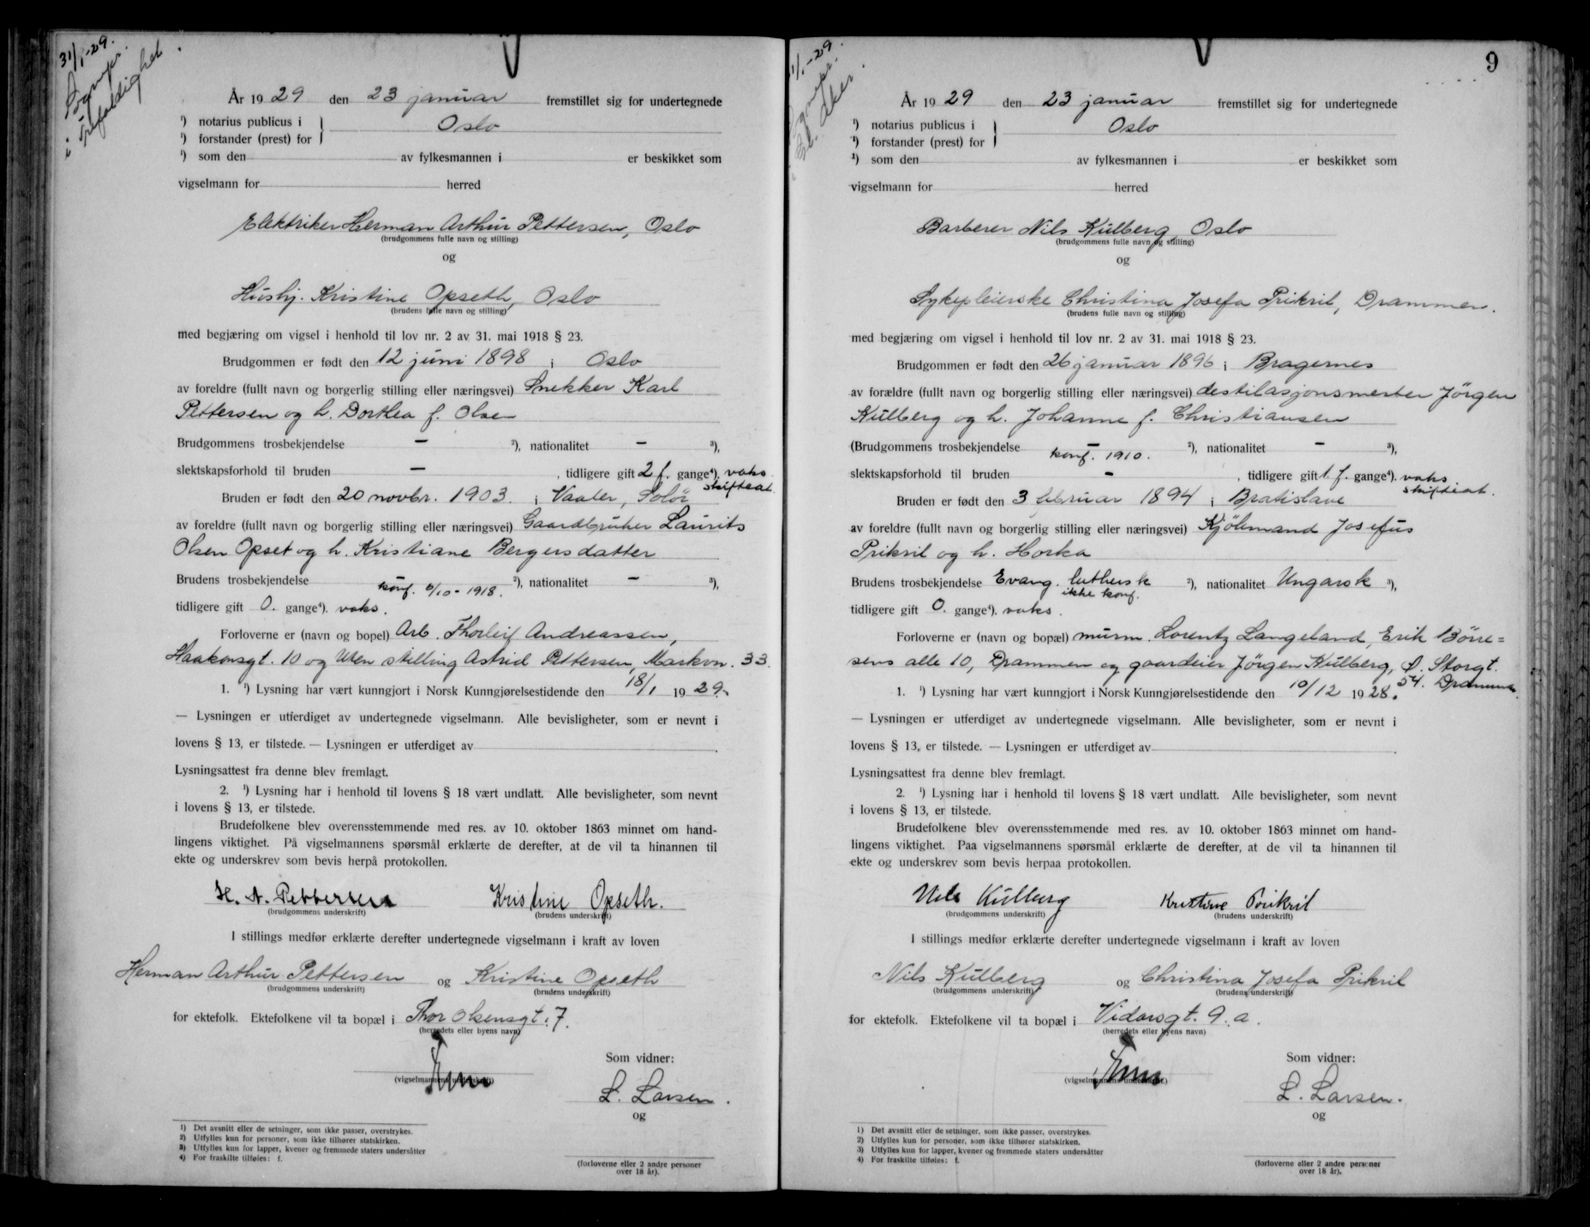 31/1-29.
Sognepr.
i Trefoldighet
År 1929 den 23 januar fremstillet sig for undertegnede
¹) notarius publicus i
¹) forstander (prest) for } Oslo
¹) som den av fylkesmannen i er beskikket som
vigselmann for herred
Elektriker Herman Arthur Pettersen, Oslo
(brudgommens fulle navn og stilling)
og
Hushj. Kristine Opseth, Oslo
(brudens fulle navn og stilling)
med begjæring om vigsel i henhold til lov nr. 2 av 31. mai 1918 § 23.
Brudgommen er født den 12 juni 1898 i Oslo
av foreldre (fullt navn og borgerlig stilling eller næringsvei) Snekker Karl
Pettersen og h. Dorthea f. Olsen
Brudgommens trosbekjendelse — ²), nationalitet — ³),
slektskapsforhold til bruden — , tidligere gift 2 f. gange⁴). vaks.
skifteat.
Bruden er født den 20 novbr. 1903. i Vaaler, Solör
av foreldre (fullt navn og borgerlig stilling eller næringsvei) Gaardbruker Laurits
Olsen Opset og h. Kristiane Bergersdatter
Brudens trosbekjendelse konf. 6/10-1918. ²), nationalitet — ³),
tidligere gift 0. gange⁴). vaks.
Forloverne er (navn og bopel) Arb. Thorleif Andreassen,
Haakonsgt. 10 og Uten stilling Astrid Pettersen, Markvn. 33.
1. ¹) Lysning har vært kunngjort i Norsk Kunngjørelsestidende den 18/1 1929.
— Lysningen er utferdiget av undertegnede vigselmann. Alle bevisligheter, som er nevnt i
lovens § 13, er tilstede. — Lysningen er utferdiget av .
Lysningsattest fra denne blev fremlagt.
2. ¹) Lysning har i henhold til lovens § 18 vært undlatt. Alle bevisligheter, som nevnt
i lovens § 13, er tilstede.
Brudefolkene blev overensstemmende med res. av 10. oktober 1863 minnet om hand-
lingens viktighet. På vigselmannens spørsmål erklærte de derefter, at de vil ta hinannen til
ekte og underskrev som bevis herpå protokollen.
H. A. Pettersen Kristine Opseth.
(brudgommens underskrift) (brudens underskrift)
I stillings medfør erklærte derefter undertegnede vigselmann i kraft av loven
Herman Arthur Pettersen og Kristine Opseth
(brudgommens underskrift) (brudens underskrift)
for ektefolk. Ektefolkene vil ta bopæl i Thor Olsensgt. 7.
(herredets eller byens navn)
(vigselmannens underskrift)
Som vidner:
L. Larsen.
og
1) Det avsnitt eller de setninger, som ikke passer, overstrykes.
2) Utfylles kun for personer, som ikke tilhører statskirken.
3) Utfylles kun for lapper, kvener og fremmede staters undersåtter
4) For fraskilte tilføies: f.
(forloverne eller 2 andre personer
over 18 år).
9
31/1-29.
Sognepr.
Gl. Aker.
År 1929 den 23 januar fremstillet sig for undertegnede
¹) notarius publicus i
¹) forstander (prest) for } Oslo
¹) som den av fylkesmannen i er beskikket som
vigselmann for herred
Barberer Nils Kulberg, Oslo
(brudgommens fulle navn og stilling)
og
Sykepleierske Christina Josefa Prikril, Drammen.
(brudens fulle navn og stilling)
med begjæring om vigsel i henhold til lov nr. 2 av 31. mai 1918 § 23.
Brudgommen er født den 26 januar 1896 i Bragernes
av forældre (fullt navn og borgerlig stilling eller næringsvei) destilasjonsmester Jörgen
Kulberg og h. Johanne f. Christiansen
(Brudgommens trosbekjendelse konf. 1910. ²), nationalitet — ³),
slektskapsforhold til bruden — , tidligere gift 1 f. gange⁴). vaks.
skifteat.
Bruden er født den 3 februar 1894 i Bratislave
av foreldre (fullt navn og borgerlig stilling eller næringsvei) Kjöbmand Josefus
Prikril og h. Horka
Brudens trosbekjendelse Evang. luthersk ²), nationalitet Ungarsk ³),
ikke konf.
tidligere gift 0. gange⁴). vaks.
Forloverne er (navn og bopæl) murm. Lorentz Langeland, Erik Börre=
sens alle 10, Drammen og gaardeier Jörgen Kulberg, S. Storgt.
54. Drammen
1. ¹) Lysning har vært kunngjort i Norsk Kunngjørelsestidende den 10/12 1928.
— Lysningen er utferdiget av undertegnede vigselmann. Alle bevisligheter, som er nevnt i
lovens § 13, er tilstede. — Lysningen er utferdiget av .
Lysningsattest fra denne blev fremlagt.
2. ¹) Lysning har i henhold til lovens § 18 vært undlatt. Alle bevisligheter, som nevnt
i lovens § 13, er tilstede.
Brudefolkene blev overensstemmende med res. av 10. oktober 1863 minnet om hand-
lingens viktighet. Paa vigselmannens spørsmål erklærte de derefter, at de vil ta hinannen til
ekte og underskrev som bevis herpaa protokollen.
Nils Kulberg Kristine Prikril
(brudgommens underskrift) (brudens underskrift)
I stillings medfør erklærte derefter undertegnede vigselmann i kraft av loven
Nils Kulberg og Christina Josefa Prikril
(brudgommens underskrift) (brudens underskrift)
for ektefolk. Ektefolkene vil ta bopæl i Vidarsgt. 9.a.
(herredets eller byens navn)
(vigselmannens underskrift)
Som vidner:
L. Larsen.
og
1) Det avsnitt eller de setninger, som ikke passer, overstrykes.
2) Utfylles kun for personer, som ikke tilhører statskirken.
3) Utfylles kun for lapper, kvener og fremmede staters undersåtter
4) For fraskilte tilføies: f.
(forloverne eller 2 andre personer
over 18 år).